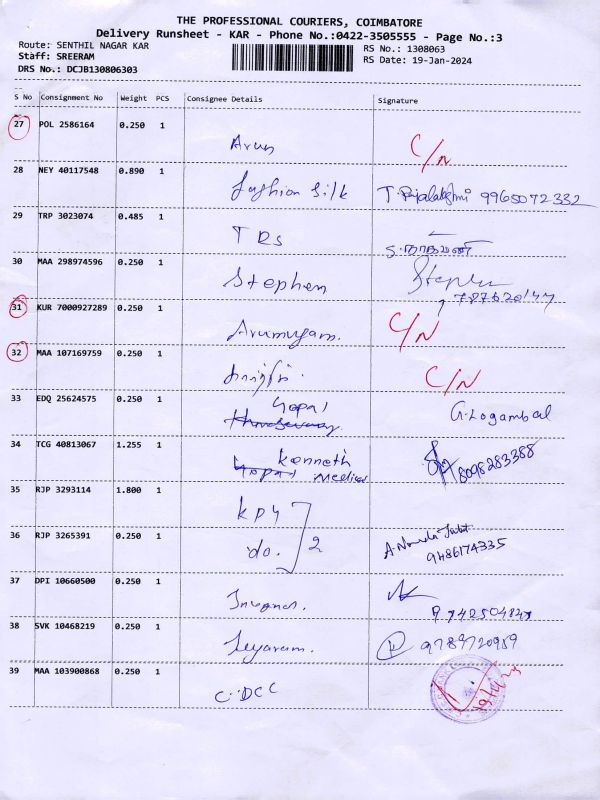 THE PROFESSIONAL COURIERS, COIMBATORE
Delivery Runsheet - KAR - Phone No.:0422-3505555 - Page No.:3
Route: SENTHIL NAGAR KAR
RS No.: 1308063
Staff: SREERAM
RS Date: 19-Jan-2024
DRS No.: DCJB130806303
S No Consignment No Weight PCS Consignee Details Signature
27 POL 2586164 0.250 1 Arun C/N
28 NEY 40117548 0.890 1 Fashion Silk T. 9965072332
29 TRP 3023074 0.485 1 TRS
30 MAA 298974596 0.250 1 Stephen Stephen
31 KUR 7000927289 0.250 1 Arumugam. C/N
32 MAA 107169759 0.250 1 C/N
33 EDQ 25624575 0.250 1 Gopal G. Logambal
34 TCG 40813067 1.255 1 Kenneth Medical 8098283388
35 RJP 3293114 1.800 1 KPY
36 RJP 3265391 0.250 1 do. 2 9486174335
37 DPI 10660500 0.250 1
38 SVK 10468219 0.250 1 Jeyaram. 9789720959
39 MAA 103900868 0.250 1 C.DCC